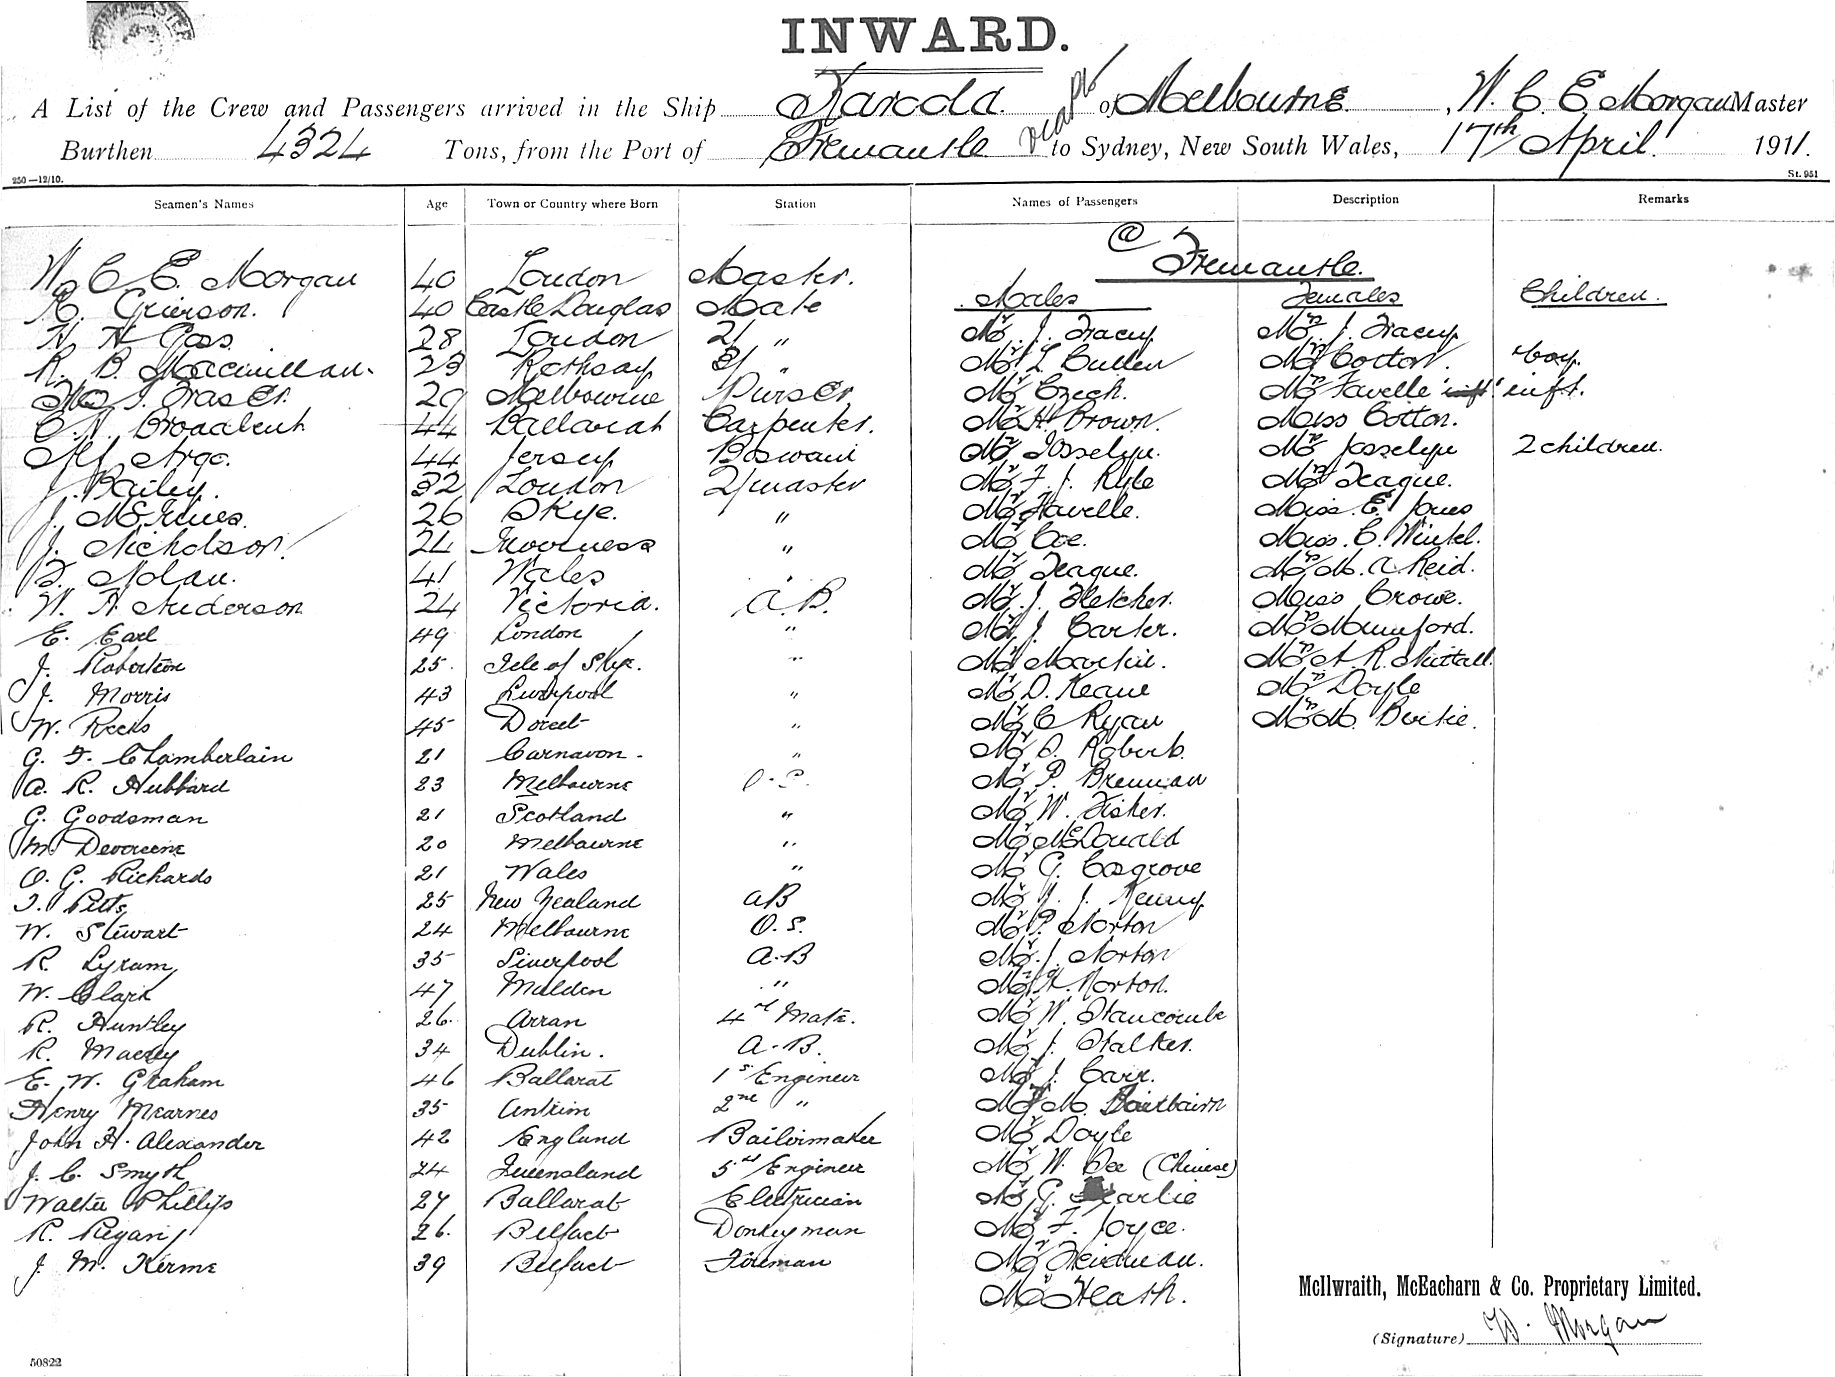 INWARD.
A List of the Crew and Passengers arrived in the Ship Karoola of Melbourne, W. C. E. Morgan Master
Burthen 4324 Tons, from the Port of Fremantle to Sydney, New South Wales, 17th April 1911.
250—12/10. St. 951
Seamen's Names Age Town or Country where Born Station Names of Passengers Description Remarks
@ Fremantle.
Males Females Children.
W. C. E. Morgan 40 London Master. Mr. J. Tracey Mrs. J. Tracey
R. Grierson. 40 Castle Douglas Mate Mr L Cullen Mrs Cotton boy.
H. H. Gas 28 London 2/ " Mr Czech. Mrs Favelle inft.
R. B. Macmillan. 23 Rothsay 3/ " Mr H. Brown. Miss Cotton.
Fraser. 29 Melbourne Purser Mr Josselyn. Mrs Josselyn 2 children.
C. A. Broadbent 44 Ballarat Carpenter. Mr F. J. Kyle Mrs Teague.
Argo. 44 Jersey Boswain Mr Favelle. Miss. E. Jones
J. Bailey. 32 London Q/master Mr Coe. Miss. C. Winkel.
J. McInnes. 26 Skye. " Mr Teague. Mrs M. A. Reid.
J. Nicholson. 24 Inverness " Mr. J. Fletcher. Miss Crowe.
Nolan. 41 Wales " Mr. J. Carter. Mrs Mumford.
W. H. Anderson 24 Victoria. A.B. Mr Markie. Mrs A. R. Nuttall.
E. Earl 49 London " Mr D. Keane Mrs Doyle
J. Robertson 25. Isle of Skye. " Mr C Ryan Mrs M. Burke.
J. Morris 43 Liverpool " Mr D. Roberts.
W. Reeks 45 Dorset " Mr P. Brennan
G. F. Chamberlain 21 Carnavon. " Mr W. Fisher.
A. R. Hubbard 23 Melbourne O.S. Mr McDonald
G. Goodsman 21 Scotland " Mr G. Cosgrove
M. Devereene 20 Melbourne " Mr J. Kenny
O. G. Richards 21 Wales " Mr P. Norton
Pitts 25 New Zealand AB Mr. J. Norton
W. Stewart 24 Melbourne O.S. Mr H. Norton.
R. Lyram 35 Liverpool A.B Mr W. Stancombe
W. Clark 47 Malden " Mr J. Stalker.
R. Huntley 26. Arran 4th Mate. Mr J. Carr.
R. Macrey 34 Dublin. A.B. Mr M. Fairbairn
E. W. Graham 46 Ballarat 1st Engineer Mr Doyle
Henry Mearnes 35 Antrim 2nd " Mr W. Dee (Chinese)
John H. Alexander 42 England Boilermaker Mr G.
J. C. Smyth 24 Queensland 5th Engineer Mr F. Joyce.
Walter Phillips 27 Ballarat Electrician Mr Friedman.
R. Regan 26. Belfast Donkeyman Mr Heath.
J. M. Kerme 39 Belfast Fireman
McIlwraith, McEacharn & Co. Proprietary Limited.
(Signature) W. Morgan
50822